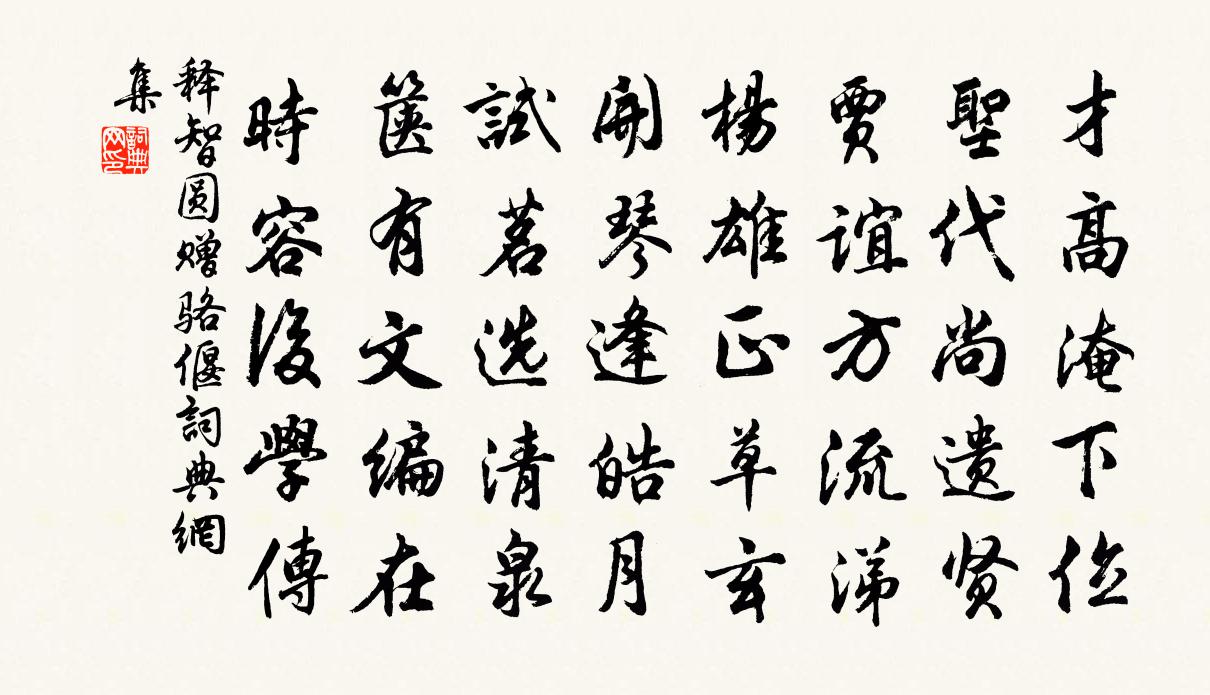 才高淹下位
聖代尚遗贤
賈誼方流涕
楊雄正草玄
開琴逢皓月
試茗选清泉
箧有文编在
時容後學傳
释智圆赠骆偃詞典網
集
詞典网印